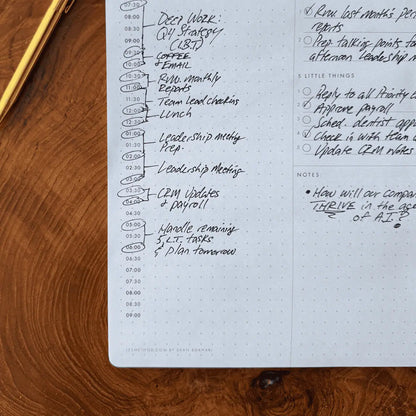 07:30
08:00
08:30
09:00
09:30
10:00
10:30
11:00
11:30
12:00
12:30
01:00
01:30
02:00
02:30
03:00
03:30
04:00
04:30
05:00
05:30
06:00
06:30
07:00
07:30
08:00
08:30
09:00
Deep Work:
Q4 Strategy
(LBT)
Coffee
& Email
Rvw. monthly
Reports
Team Lead Checkins
Lunch
Leadership Meeting
Prep.
Leadership Meeting
CRM Updates
& payroll
Handle remaining
5 L.T. tasks
& plan tomorrow
Rvw. last months per
reports
Prep talking points fo
afternoon leadership m
5 LITTLE THINGS
Reply to all Priority E
Approve payroll
Sched. dentist app
Check in with team
Update CRM notes
NOTES:
• How will our compan
THRIVE in the age
of A.I.?